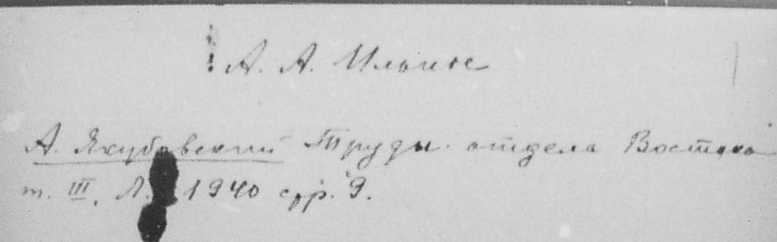 А. А. Ильин
А. Якубовский Труды отдела Востока
т. III, Л. 1940 стр. 9.